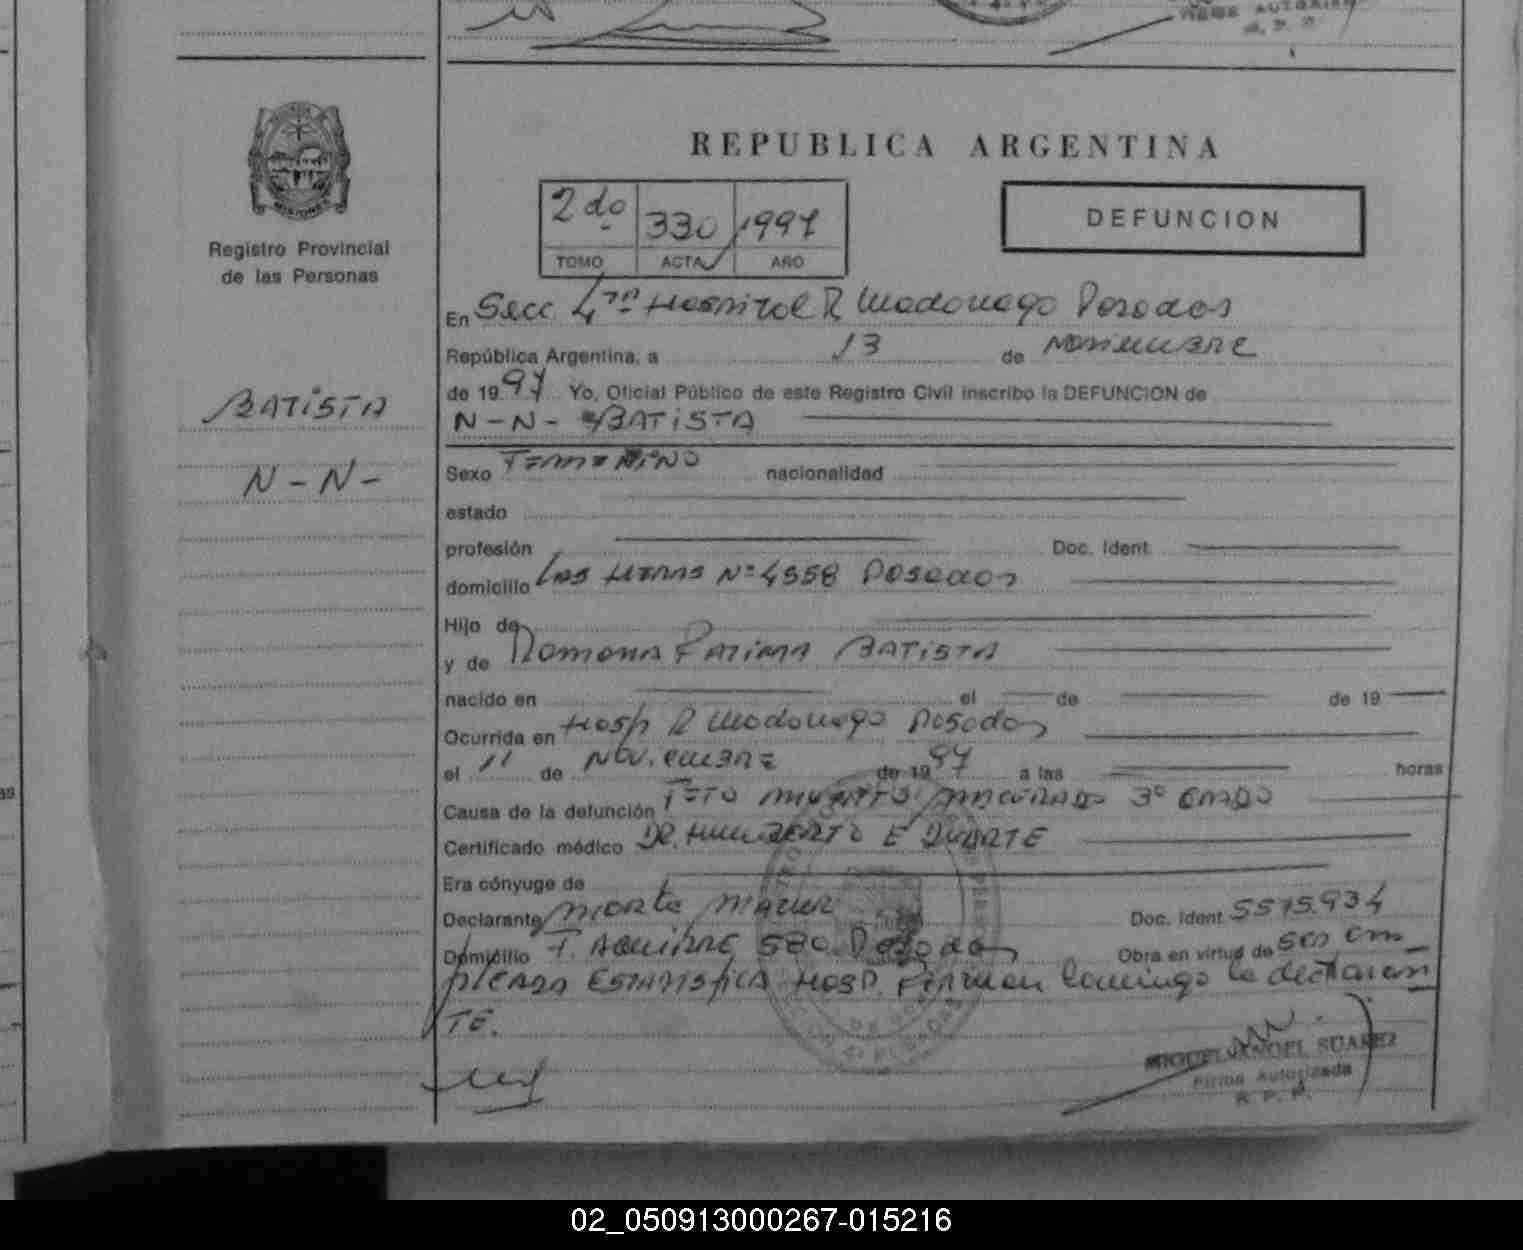 REPUBLICA ARGENTINA
2do 330 1997
TOMO ACTA AÑO
DEFUNCION
MISIONES
Registro Provincial
de las Personas
BATISTA
N-N-
En Secc 4ta Hospital R Madariaga Posadas
República Argentina, a 13 de Noviembre
de 1997 Yo, Oficial Público de este Registro Civil inscribo la DEFUNCION de
N-N- BATISTA
Sexo Femenino nacionalidad
estado
profesión Doc. Ident.
domicilio Las Heras Nº 4558 Posadas
Hijo de
y de Ramona Fatima BATISTA
nacido en el de de 19
Ocurrida en Hosp R Madariaga Posadas
el 11 de Noviembre de 1997 a las horas
Causa de la defunción Feto muerto macerado 3º grado
Certificado médico DR. HUMBERTO E DUARTE
Era cónyuge de
Declarante Marta
Doc. Ident. 5515.934
Domicilio F. AGUIRRE 580 Posadas Obra en virtud de ser em
pleada ESTADISTICA HOSP. Firman la declaran
TE.
MIGUEL ANGEL SUAREZ
Firma Autorizada
R. P. P.
02_050913000267-015216